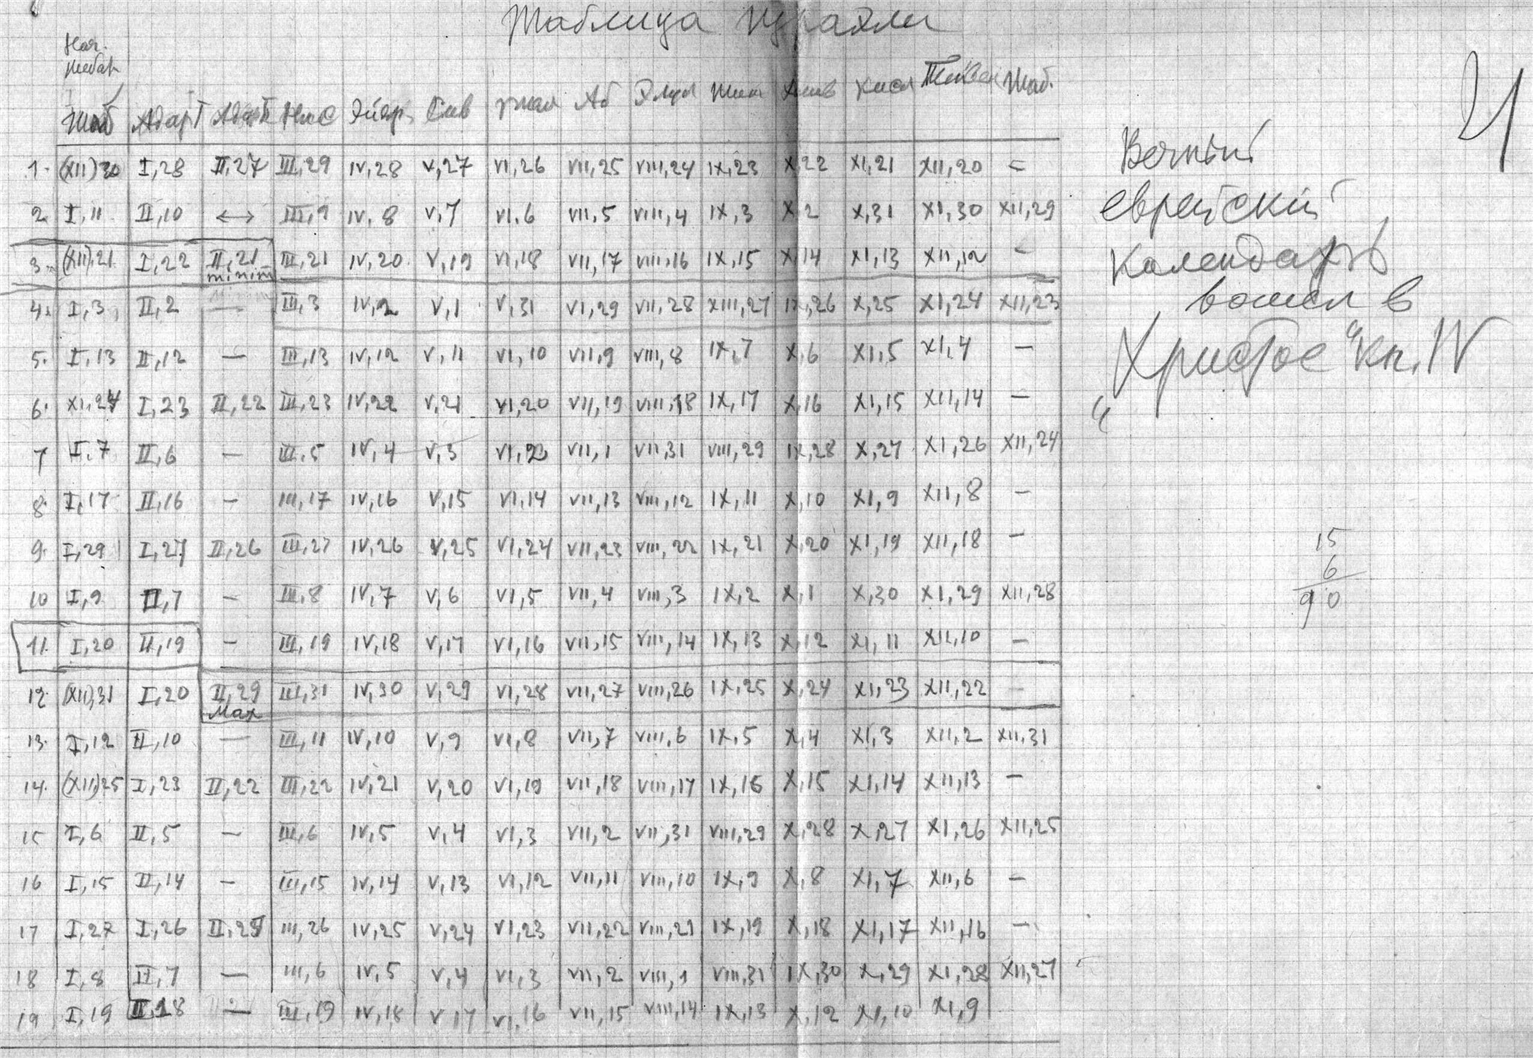 Таблица
Нач.
Шаб Адар I Адар II Нис Эйар Сив Аб Элул Кисл Шаб.
1. (XII) 30 I,28 II,27 III,29 IV,28 V,27 VI,26 VII,25 VIII,24 IX,23 X,22 XI,21 XII,20 –
2. I,11 II,10 ↔ III,9 IV,8 V,7 VI,6 VII,5 VIII,4 IX,3 X,2 X,31 XI,30 XII,29
3. (XII),21 I,22 II,21 III,21 IV,20 V,19 VI,18 VII,17 VIII,16 IX,15 X,14 XI,13 XII,12 –
minim
4. I,3 II,2 — III,3 IV,2 V,1 V,31 VI,29 VII,28 XIII,27 IX,26 X,25 XI,24 XII,23
5. I,13 II,12 — III,13 IV,12 V,11 VI,10 VII,9 VIII,8 IX,7 X,6 XI,5 XI,4 —
6. I,23 II,22 III,23 IV,22 V,21 VI,20 VII,19 VIII,18 IX,17 X,16 XI,15 XII,14 —
7 I,7 II,6 – III,5 IV,4 V,3 VII,1 VII,31 VIII,29 IX,28 X,27 XI,26 XII,24
8. I,17 II,16 – III,17 IV,16 V,15 VI,14 VII,13 VIII,12 IX,11 X,10 XI,9 XII,8 —
9. I,29 I,27 II,26 III,27 IV,26 V,25 VI,24 VII,23 VIII,22 IX,21 X,20 XI,19 XII,18 –
10 I,9 II,7 – III,8 IV,7 V,6 VI,5 VII,4 VIII,3 IX,2 X,1 X,30 XI,29 XII,28
11. I,20 II,19 – III,19 IV,18 V,17 VI,16 VII,15 VIII,14 IX,13 X,12 XI,11 XII,10 –
12 (XII),31 I,20 II,29 III,31 IV,30 V,29 VI,28 VII,27 VIII,26 IX,25 X,24 XI,23 XII,22 —
Max
13. I,12 II,10 — III,11 IV,10 V,9 VI,8 VII,7 VIII,6 IX,5 X,4 XI,3 XII,2 XII,31
14. (XII)25 I,23 II,22 III,22 IV,21 V,20 VI,19 VII,18 VIII,17 IX,16 X,15 XI,14 XII,13 –
15 I,6 II,5 – III,6 IV,5 V,4 VI,3 VII,2 VII,31 VIII,29 X,28 X,27 XI,26 XII,25
16 I,15 II,14 – III,15 IV,14 V,13 VI,12 VII,11 VIII,10 IX,9 X,8 XI,7 XII,6 —
17 I,27 I,26 III,26 IV,25 V,24 VI,23 VII,22 VIII,21 IX,19 X,18 XI,17 XII,16 —
18 I,8 II,7 — III,6 IV,5 V,4 VI,3 VII,2 VIII,1 VIII,31 IX,30 X,29 XI,28 XII,27
19 I,19 II,18 — III,19 IV,18 V,17 VI,16 VII,15 VIII,14 IX,13 X,12 XI,10 XI,9
Вечный
еврейский
календарь
вошел в
„Христос“ кн. IV
15
6
90